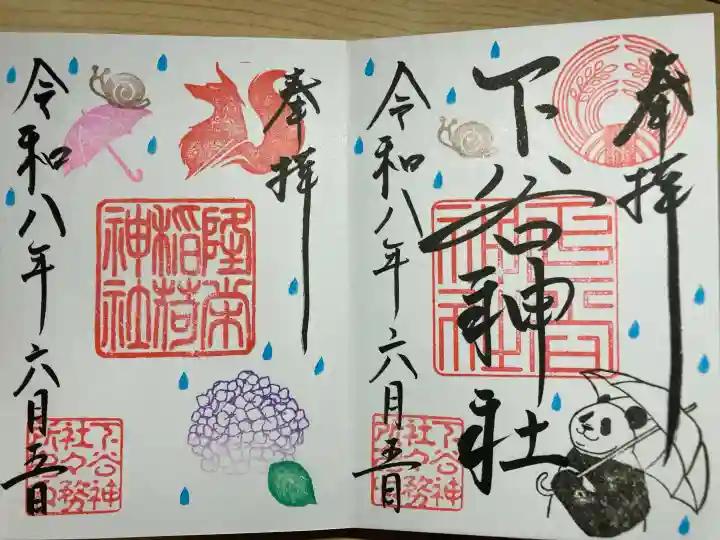 奉拝
下谷神社
令和八年六月五日
下谷神社
下谷神
社々務
所之印
奉拝
隆栄
稲荷
神社
令和八年六月五日
下谷神
社々務
所之印